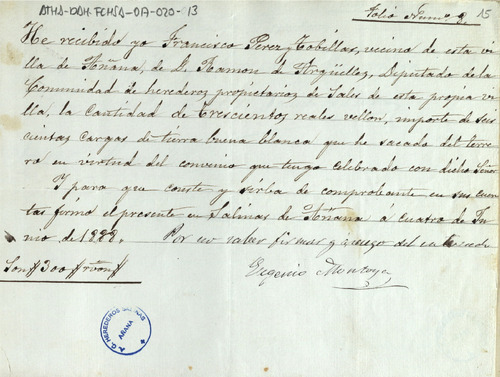 ATHA-DAH-FCHSA-OA-020-13
Folio Num.º 9. 15
He recibido yo Francisco Perez y Tobillas, vecino de esta vi
lla de Añana, de D. Ramon de Argüelles, Diputado de la
Comunidad de herederos propietarios de Sales de esta propia vi
lla, la Cantidad de Trescientos reales vellon, importe de seis
cientas cargas de tierra buena blanca que he sacado del terre
ro en virtud del convenio que tengo celebrado con dicho Señor
Y para que conste y sirba de comprobante en sus cuen
tas firmo el presente en Salinas de Añana á cuatro de Ju
nio de 1888. Por no saber firmar y á ruego del
Son 300 rvon
Eugenio Montoya
HEREDEROS
AÑANA